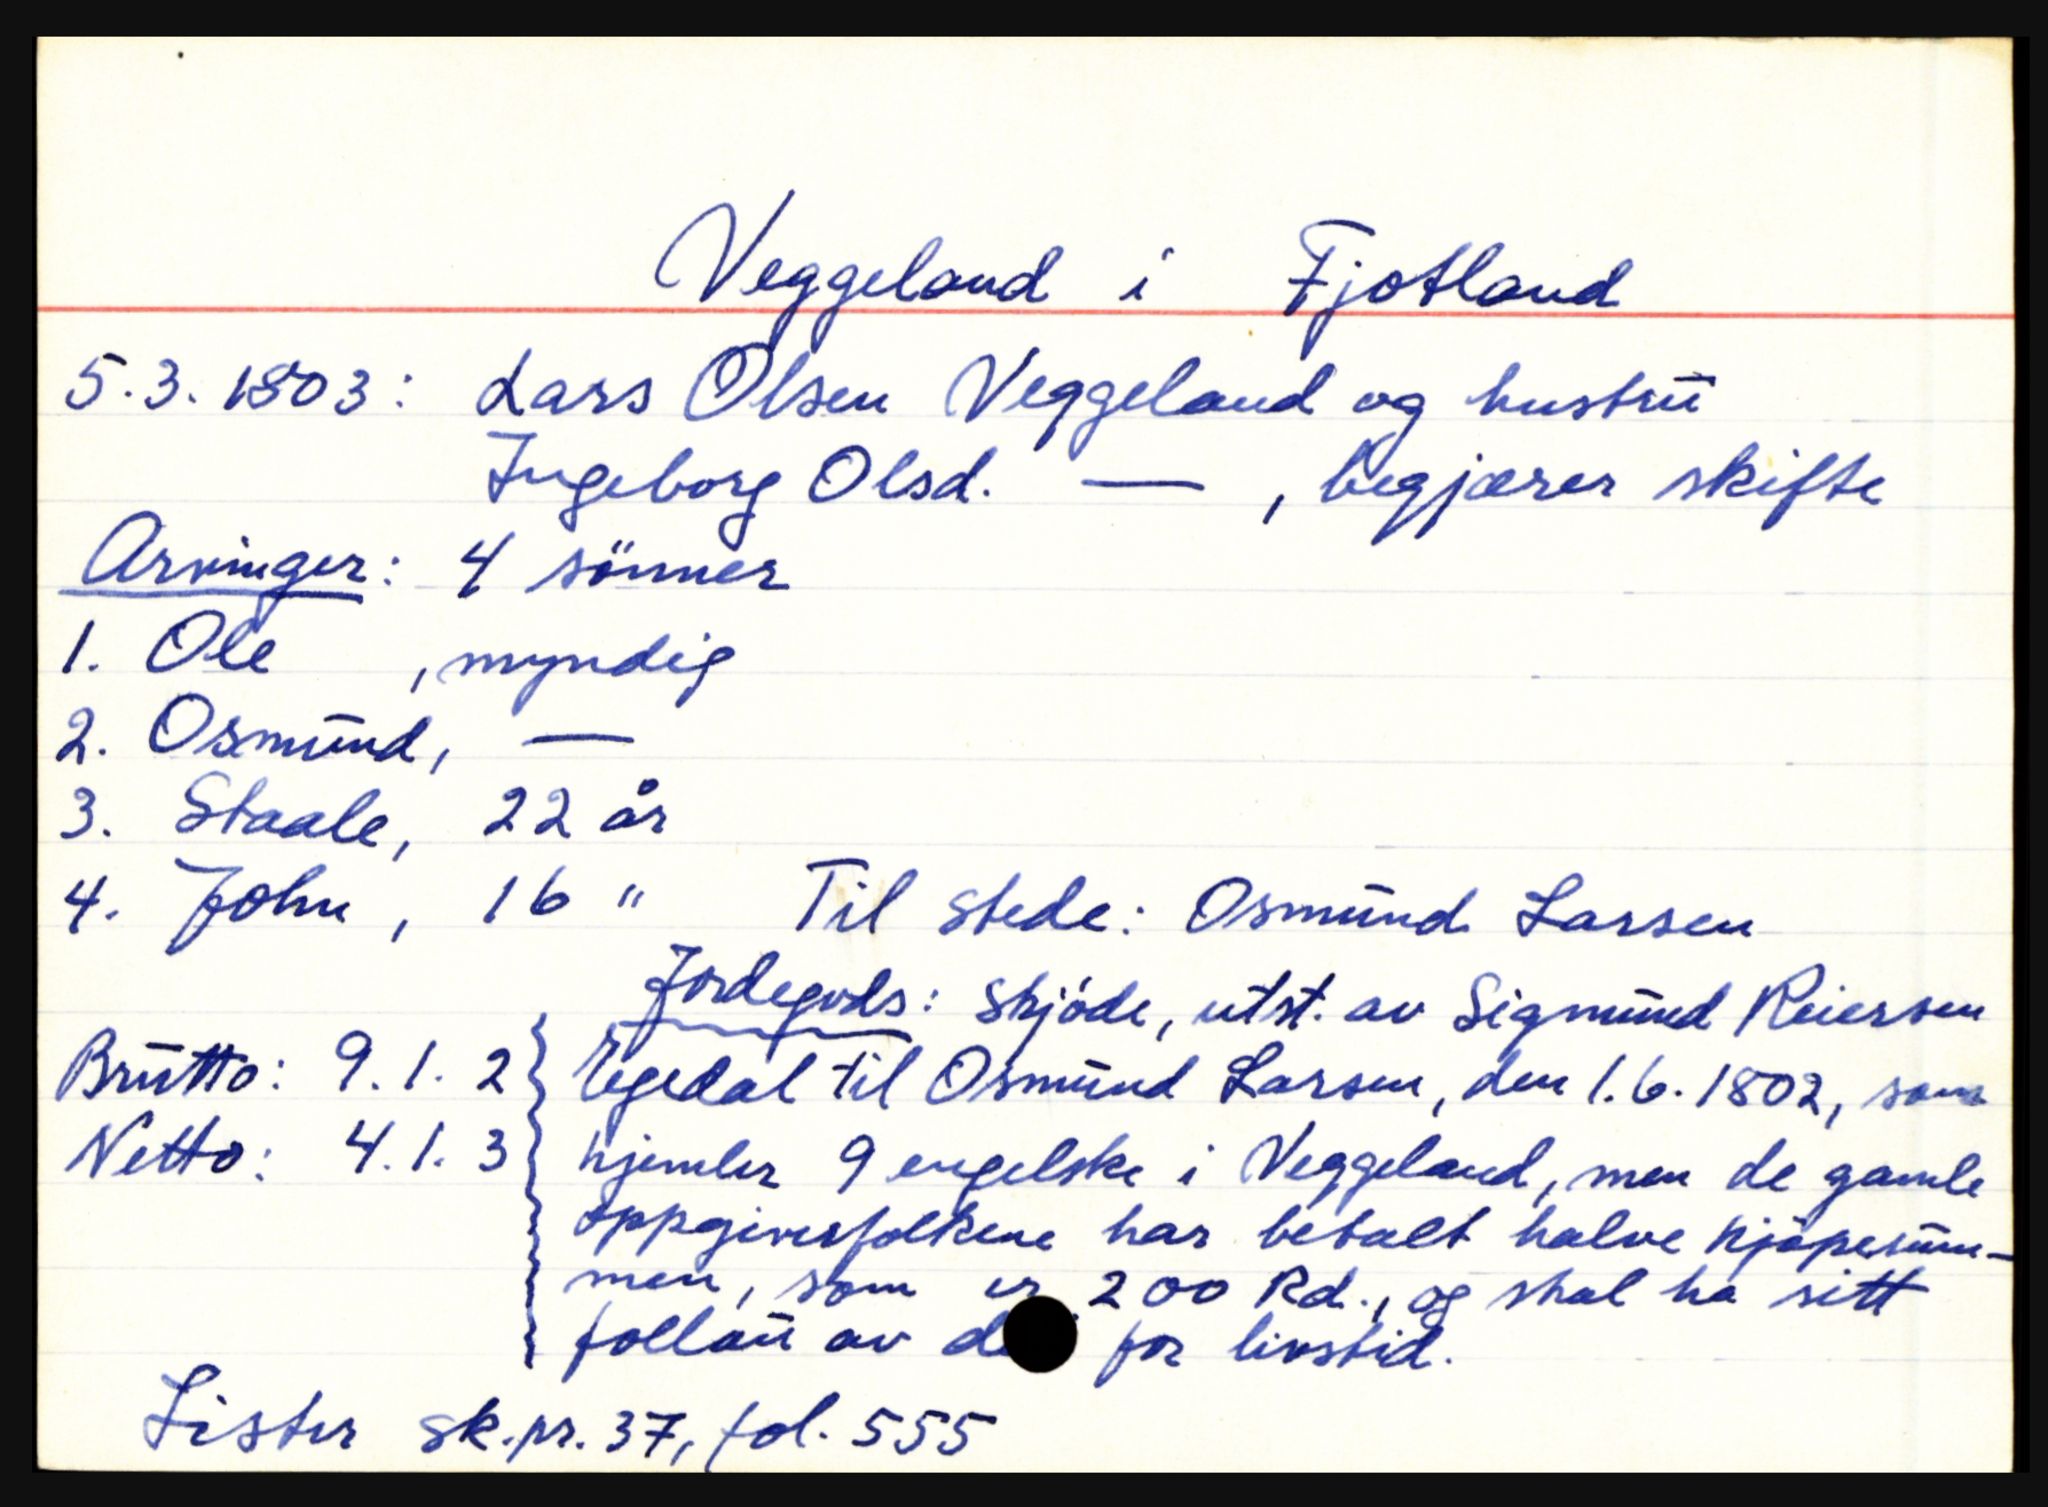 Veggeland i Fjotland
5.3.1803: Lars Olsen Veggeland og hustru
Ingeborg Olsd. — , begjærer skifte
Arvinger: 4 sönner
1. Ole , myndig
2. Osmund, —
3. Staale, 22 år
4. John, 16 " Til stede: Osmund Larsen
Jordegods: Skjöde, utst. av Sigmund Reiersen
Brutto: 9.1.2 Egedal til Osmund Larsen, den 1.6.1802, som
Netto: 4.1.3 hjemler 9 engelske i Veggeland, men de gamle
oppgiversfolkene har betalt halve kjöpesum-
men, som er 200 Rd., og skal ha sitt
follau av for livstid.
Lister sk.pr. 37, fol. 555